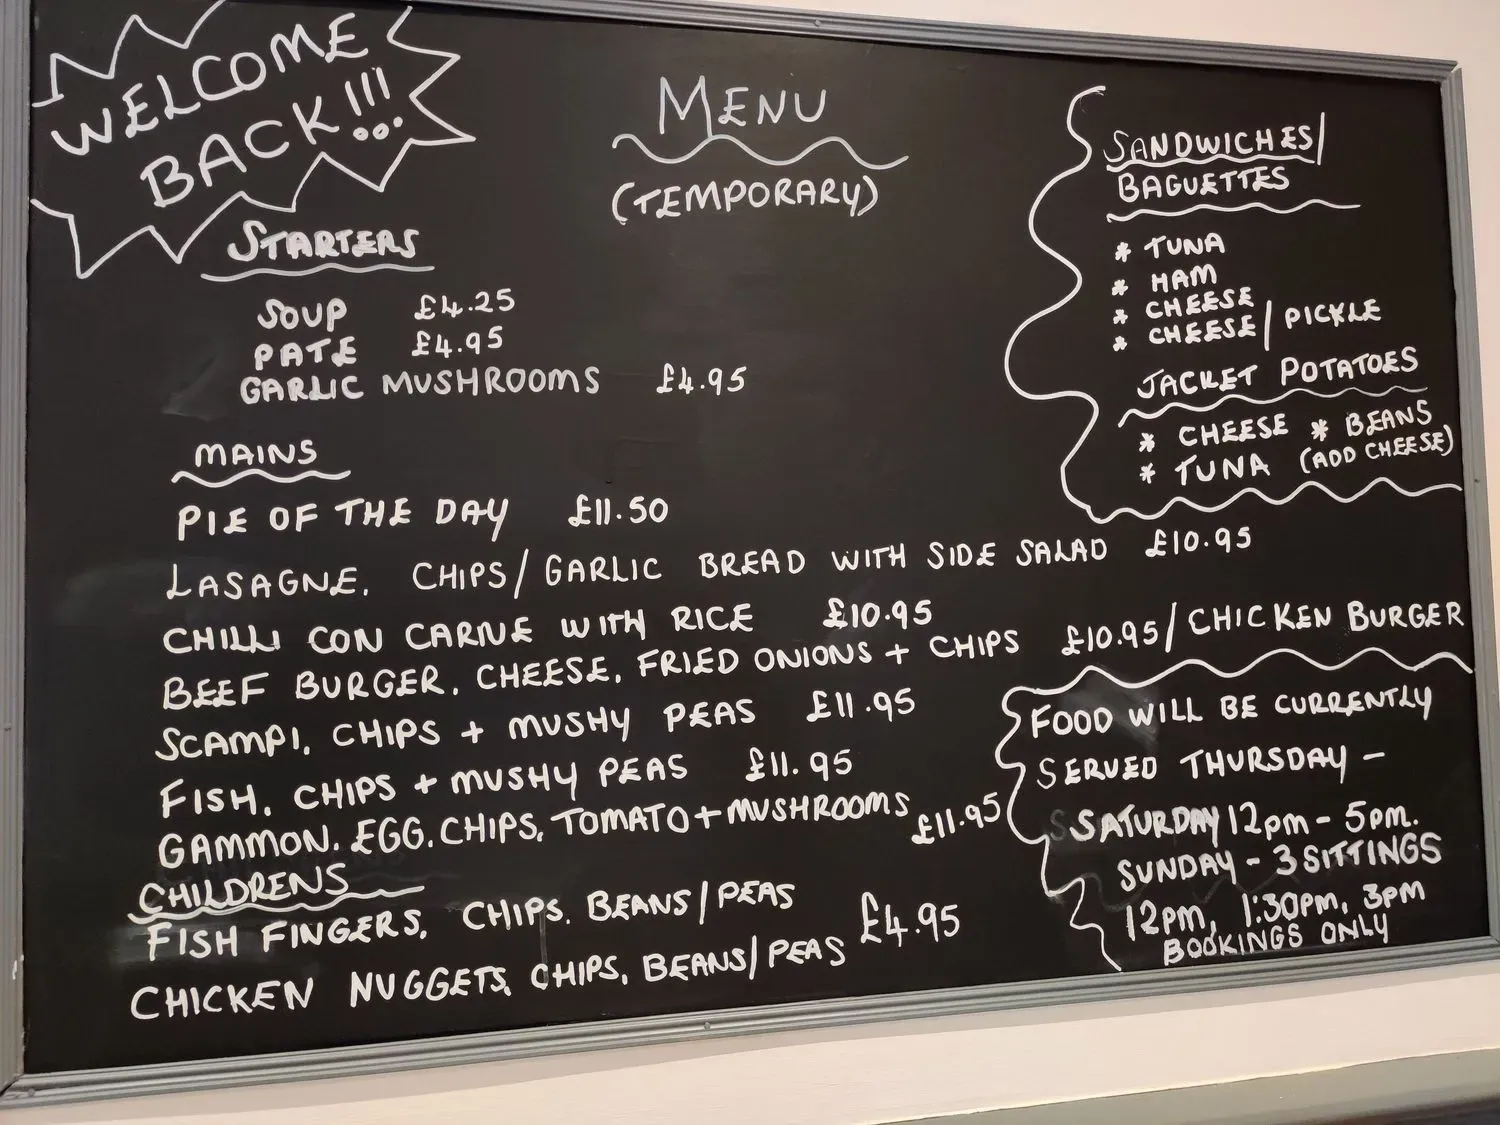 WELCOME
BACK!!!
MENU
(TEMPORARY)
STARTERS
SOUP £4.25
PATE £4.95
GARLIC MUSHROOMS £4.95
MAINS
PIE OF THE DAY £11.50
LASAGNE, CHIPS/GARLIC BREAD WITH SIDE SALAD £10.95
CHILLI CON CARNE WITH RICE £10.95
BEEF BURGER, CHEESE, FRIED ONIONS + CHIPS £10.95/CHICKEN BURGER
SCAMPI, CHIPS + MUSHY PEAS £11.95
FISH, CHIPS + MUSHY PEAS £11.95
GAMMON, EGG, CHIPS, TOMATO + MUSHROOMS £11.95
CHILDRENS
FISH FINGERS, CHIPS, BEANS/PEAS
CHICKEN NUGGETS, CHIPS, BEANS/PEAS £4.95
SANDWICHES/
BAGUETTES
* TUNA
* HAM
* CHEESE
* CHEESE/PICKLE
JACKET POTATOES
* CHEESE * BEANS
* TUNA (ADD CHEESE)
FOOD WILL BE CURRENTLY
SERVED THURSDAY -
SATURDAY 12pm - 5pm.
SUNDAY - 3 SITTINGS
12pm, 1:30pm, 3pm
BOOKINGS ONLY